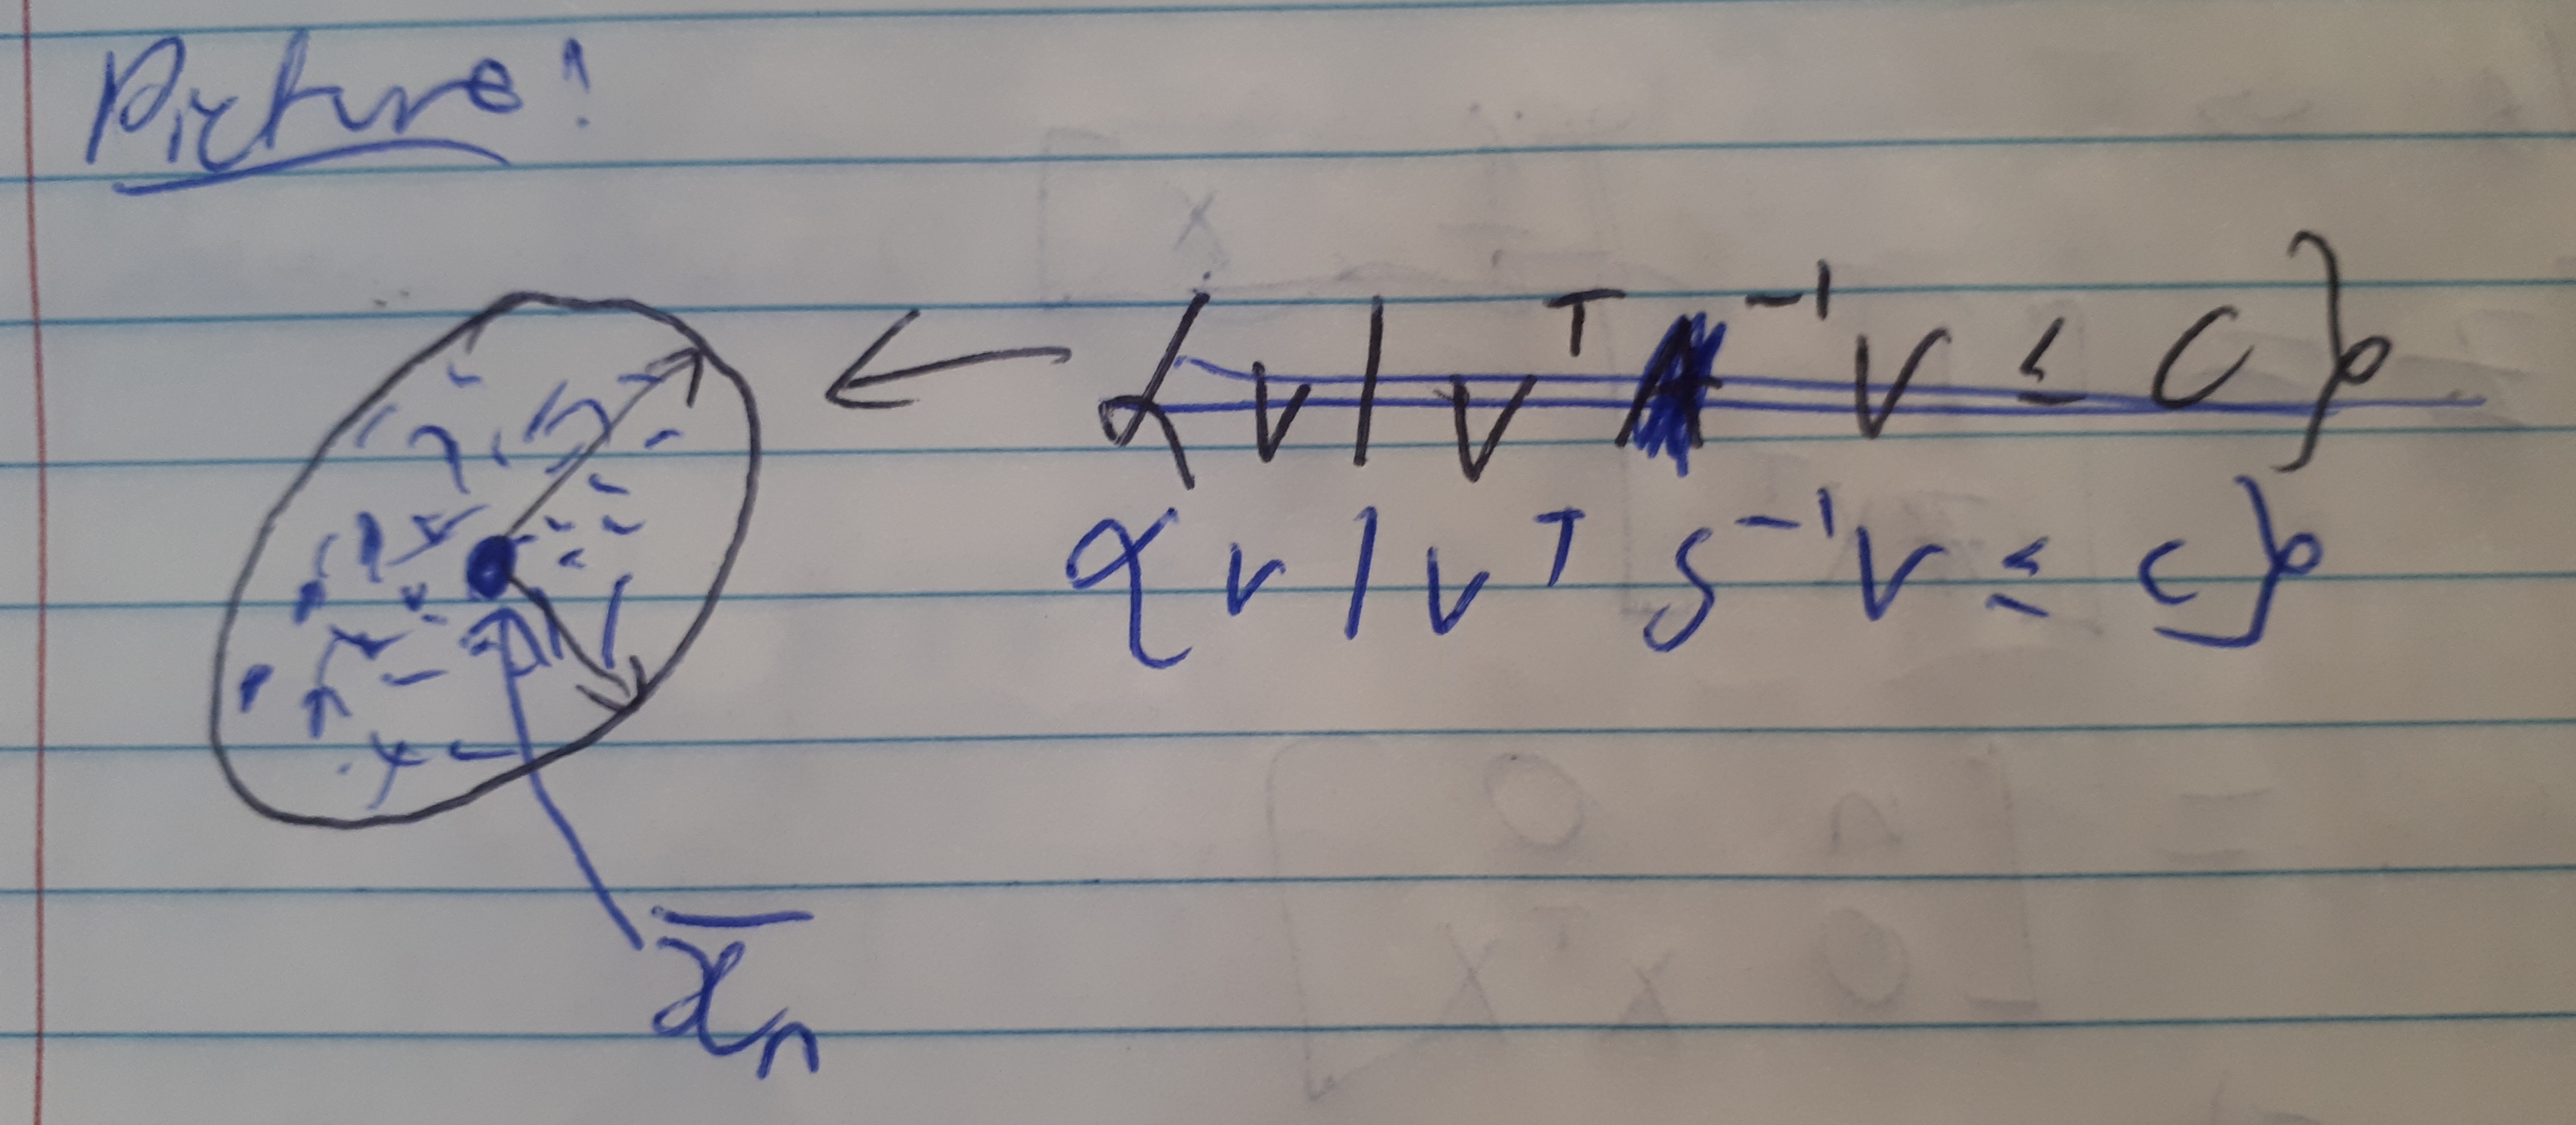 Picture!
{v | vᵀ A⁻¹ v ≤ c}
{v | vᵀ S⁻¹ v ≤ c}
x̄ₙ